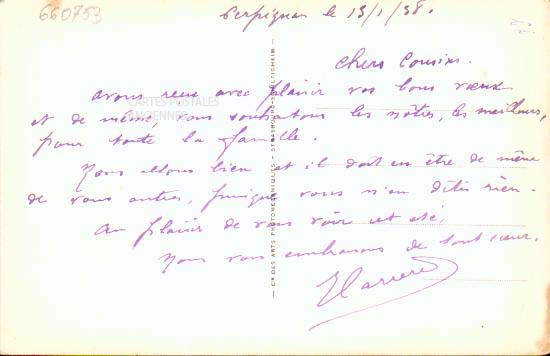 660753
Perpignan le 13/1/58.
Chers Cousins.
avons reçu avec plaisir vos bons vœux
et de même, vous souhaitons les nôtres, les meilleurs,
pour toute la famille.
Nous allons bien et il doit en être de même
de vous autres, puisque vous n'en dites rien.
Au plaisir de vous voir cet été,
Nous vous embrassons de tout cœur.
CARTES POSTALES
ANCIENNES
Cie DES ARTS PHOTOMÉCANIQUES - STRASBOURG-SCHILTIGHEIM